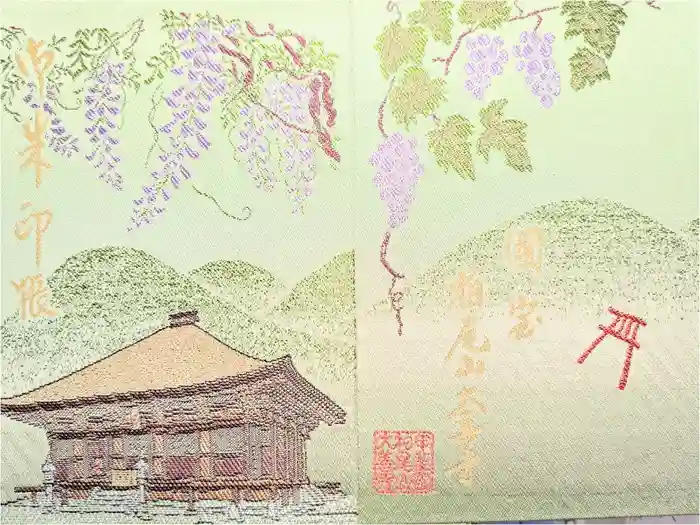 御朱印帳
國宝
柏尾山大善寺
甲斐國
柏尾山
大善寺